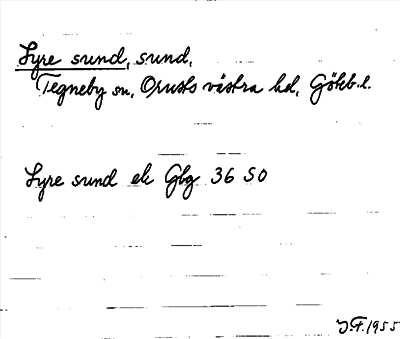 Lyre sund, sund,
Tegneby sn, Orusts västra hd, Göteb. l.
Lyre sund ek Gbg 36 SO
J.F. 1955